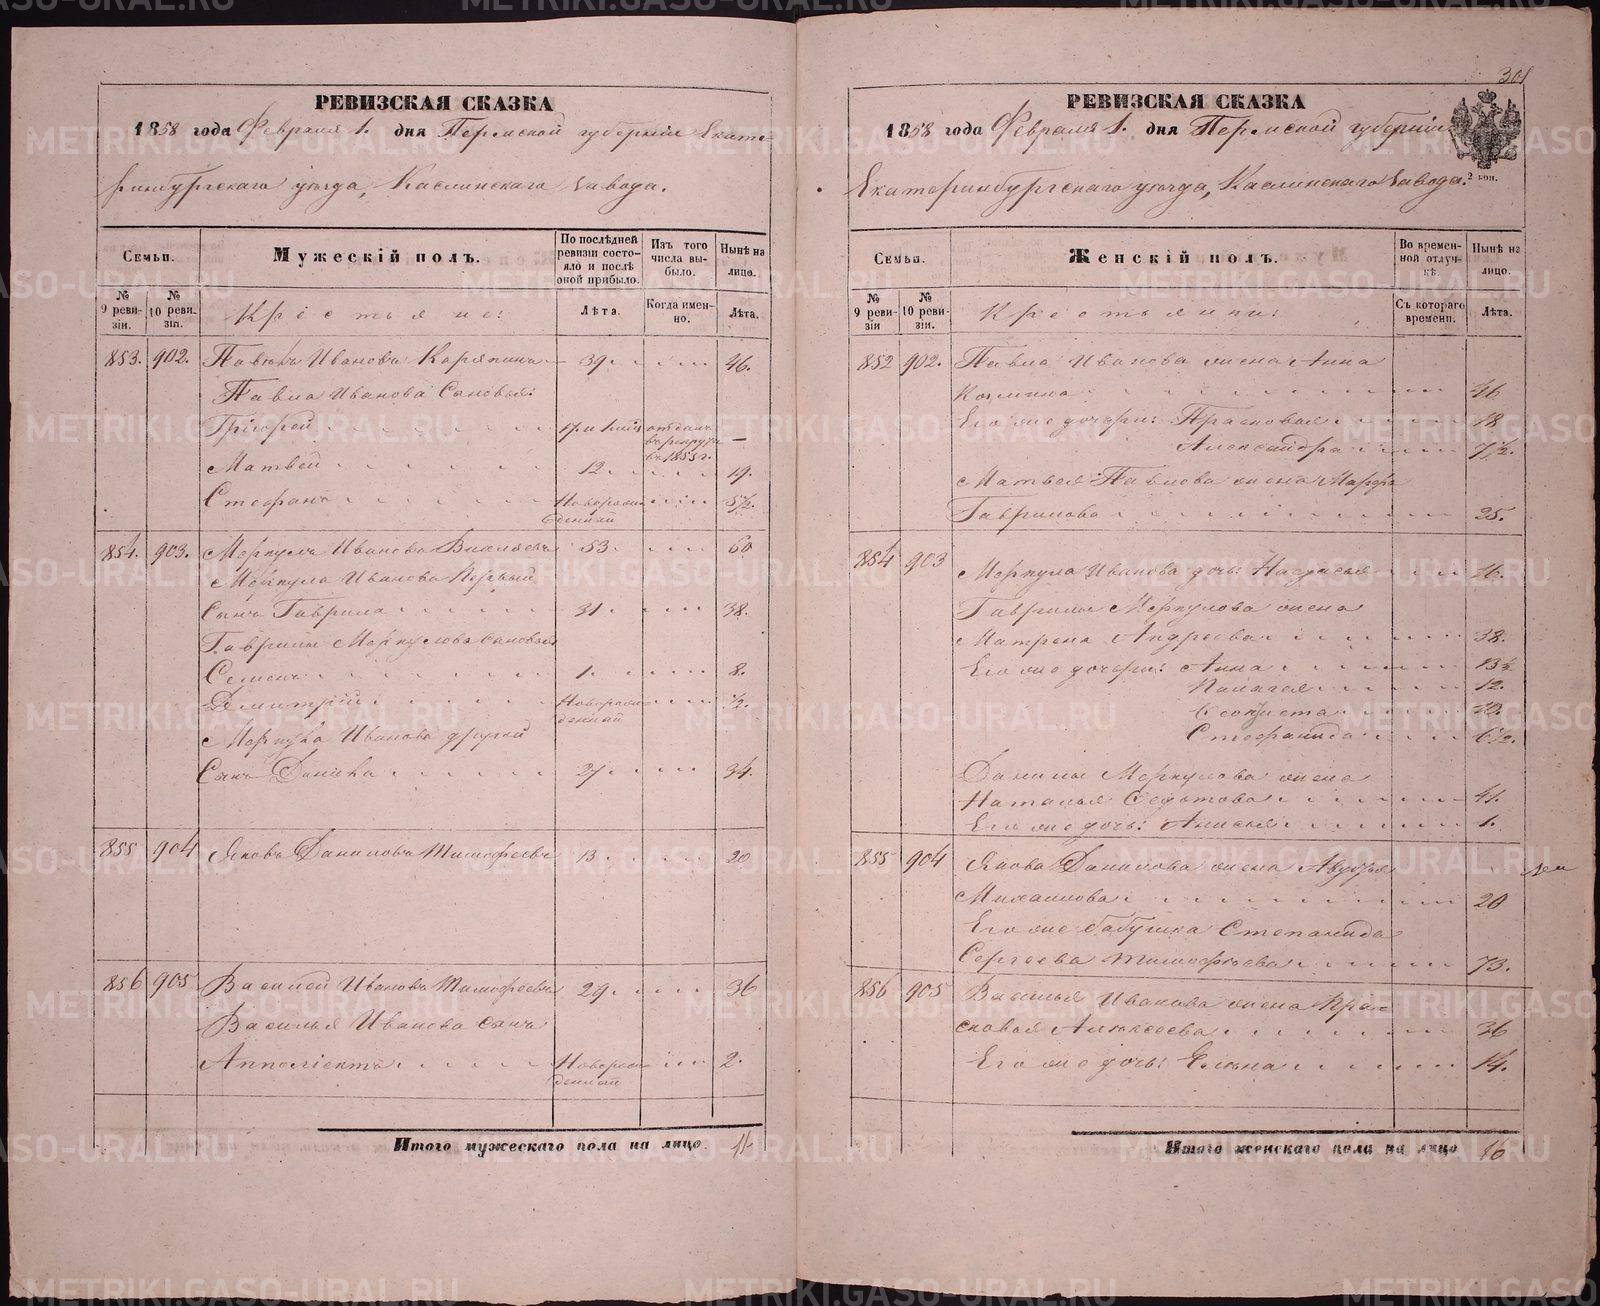 РЕВИЗСКАЯ СКАЗКА
1858 года Февраля 1. дня Пермской губернiи Екате-
ринбургскаго уѣзда, Каслинскаго Завода.
Семьи.
Мужескiй полъ.
По послѣдней ревизiи состояло и послѣ оной прибыло.
Изъ того числа выбыло.
Нынѣ на лицо.
№ 9 ревизiи.
№ 10 ревизiи.
Крестьяне:
Лѣта.
Когда именно.
Лѣта.
853. 902. Ивановъ 39. 46.
Павла Иванова Сыновья:
Григорей отдан въ рекруты въ 1855 г. —
Матвей 12. 19.
Стефанъ Новорожденный 5½.
854. 903. Меркулъ Ивановъ 53. 60
Меркула Иванова Первый
Сынъ Гаврила 31. 38.
Гаврилы Меркулова сыновья
Семенъ 1. 8.
Дмитрiй Новорожденный ½.
Меркула Иванова другой
Сынъ Данила 27. 34.
855 904 Яковъ Даниловъ Тимофеевъ 13. 20
856 905 Василей Ивановъ Тимофеевъ 29. 36
Василья Иванова сынъ
Новорожденный 2.
Итого мужескаго пола на лицо. 11
301
РЕВИЗСКАЯ СКАЗКА
1858 года Февраля 1. дня Пермской губернiи
Екатеринбургскаго уѣзда, Каслинскаго Завода.
2 коп.
Семьи.
Женскiй полъ.
Во временной отлучкѣ.
Нынѣ на лицо.
№ 9 ревизiи
№ 10 ревизiи.
Крестьянки:
Съ котораго времени.
Лѣта.
852 902. Павла Иванова жена Анна
Козмина 46
Его же дочери: Прасковья 18
Александра 7½.
Матвея Павлова жена Марфа
Гаврилова 25.
854 903 Меркула Иванова дочь Настасья 16.
Гаврилы Меркулова жена
Матрена Андреева 38.
Его же дочери: Анна 13½
Палагея 12.
10.
Стефанида 6½.
Данилы Меркулова жена
Наталья Федотова 41.
Его же дочь: Анисья 1.
855 904 Якова Данилова жена Авдотья
Михаилова 20
Его же бабушка Степанида
Сергеева Тимофѣева 73.
856 905 Василья Иванова жена Пра-
сковья Алексѣева 36
Его же дочь: Елена 14.
Итого женскаго пола на лицо 16